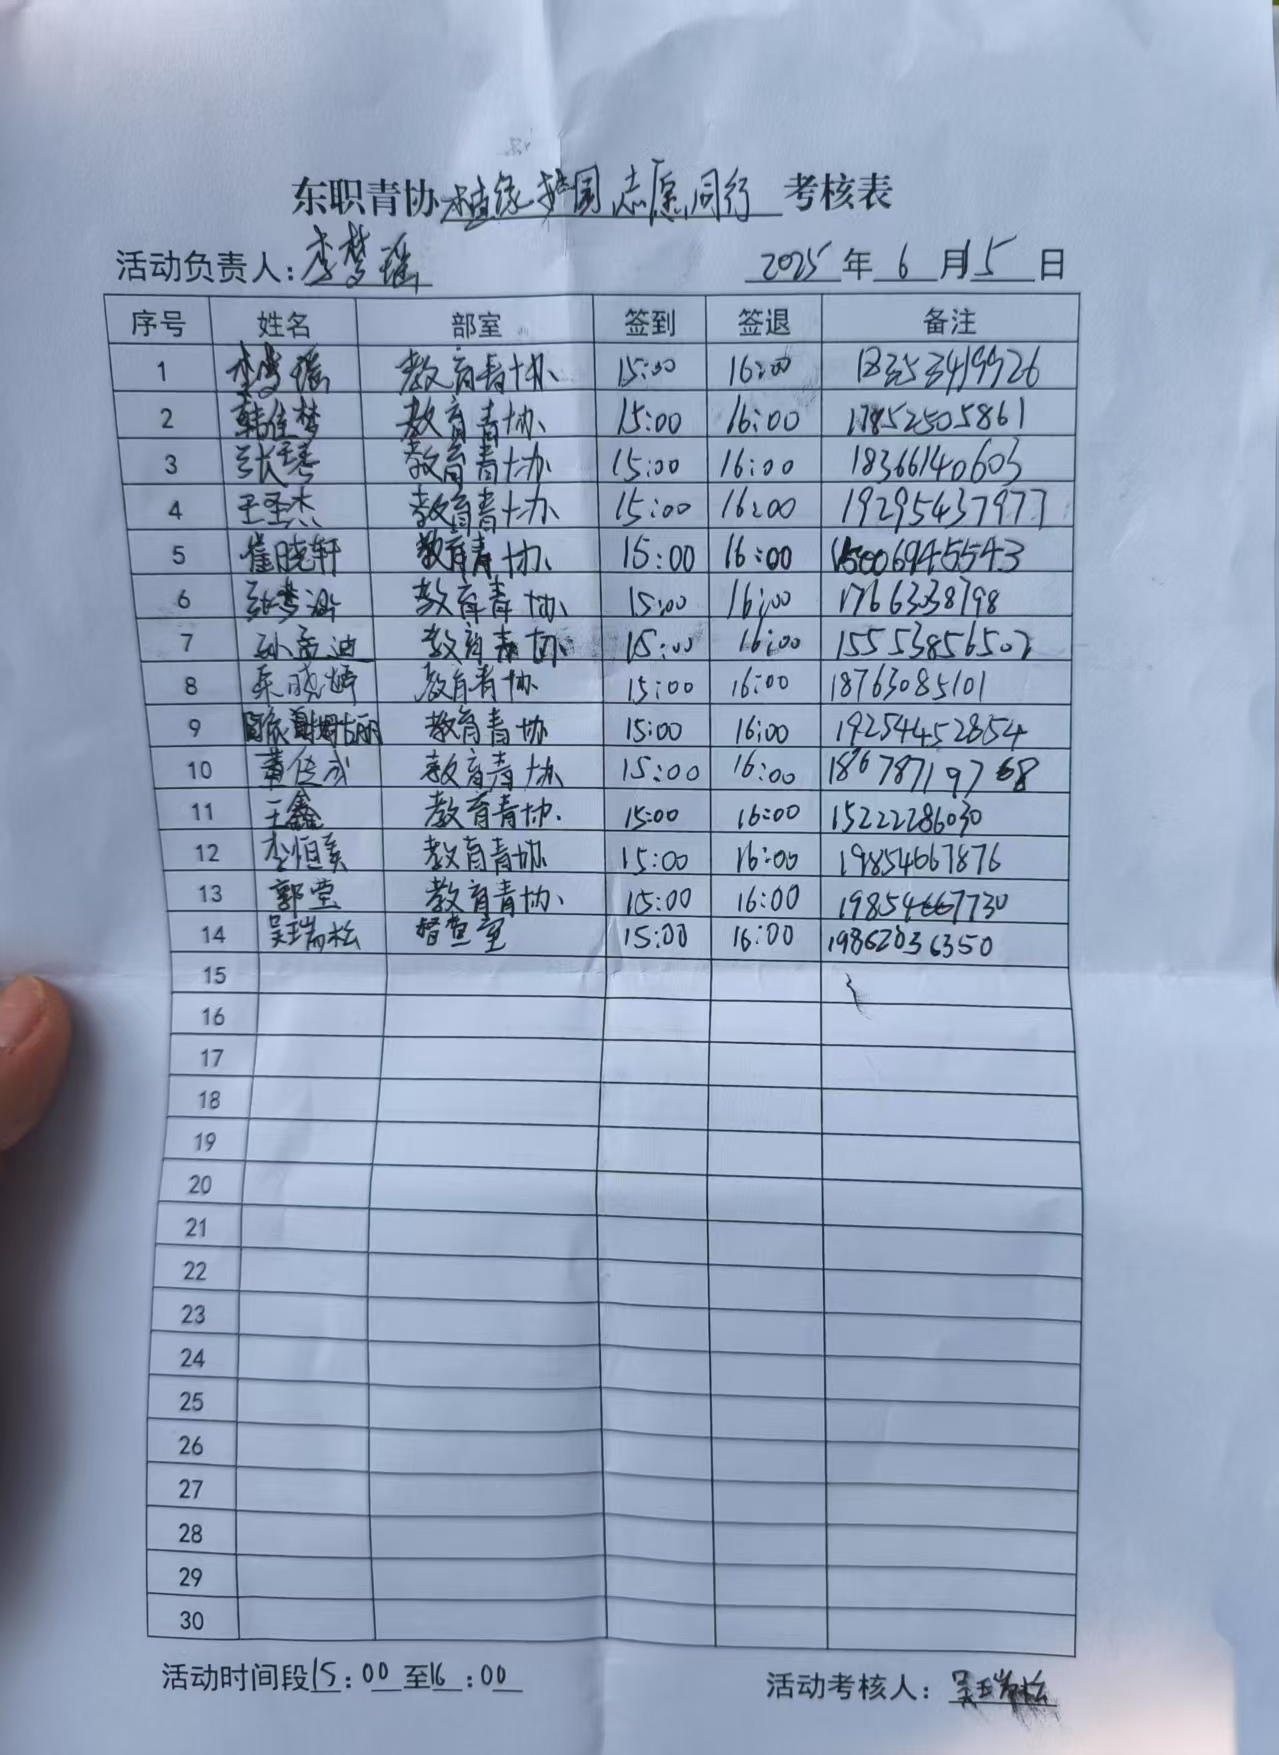 东职青协植绿护园 志愿同行 考核表
活动负责人：李梦瑶 2025年6月5日
序号 姓名 部室 签到 签退 备注
1 李梦瑶 教育青协 15:00 16:00 18353419926
2 韩佳梦 教育青协 15:00 16:00 17852505861
3 教育青协 15:00 16:00 18366140603
4 王圣杰 教育青协 15:00 16:00 19295437977
5 崔晓轩 教育青协 15:00 16:00 15006945543
6 教育青协 15:00 16:00 17663338798
7 孙孟迪 教育青协 15:00 16:00 15553856502
8 教育青协 15:00 16:00 18763085101
9 教育青协 15:00 16:00
10 董传成 教育青协 15:00 16:00
11 王鑫 教育青协 15:00 16:00 15222286030
12 李恒美 教育青协 15:00 16:00 19854667876
13 郭莹 教育青协 15:00 16:00 19854667730
14 吴瑞松 督查室 15:00 16:00 19862036350
15
16
17
18
19
20
21
22
23
24
25
26
27
28
29
30
活动时间段15:00至16:00 活动考核人：吴瑞松